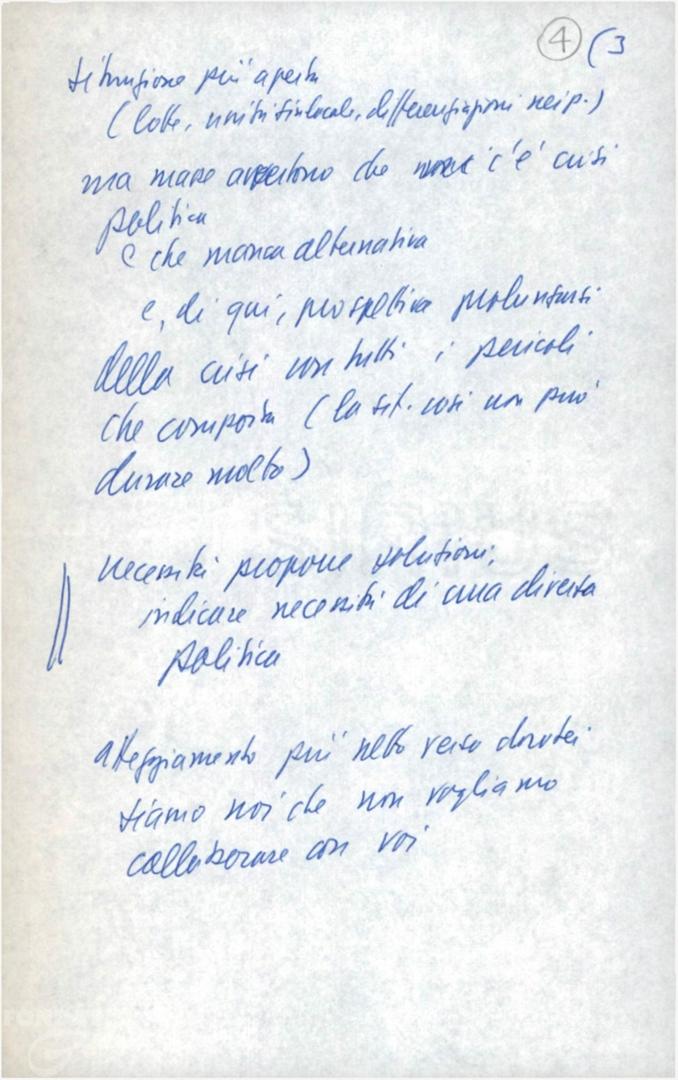 4 (3
situazione più aperta
(lotte, unità sindacale, differenziazioni nei p.)
ma masse avvertono che c'è crisi
politica
e che manca alternativa
e, di qui, prospettiva prolungarsi
della crisi con tutti i pericoli
che comporta (la sit. così non può
durare molto)
necessità proporre soluzioni,
indicare necessità di una diversa
politica
atteggiamento più netto verso dorotei
siamo noi che non vogliamo
collaborare con voi